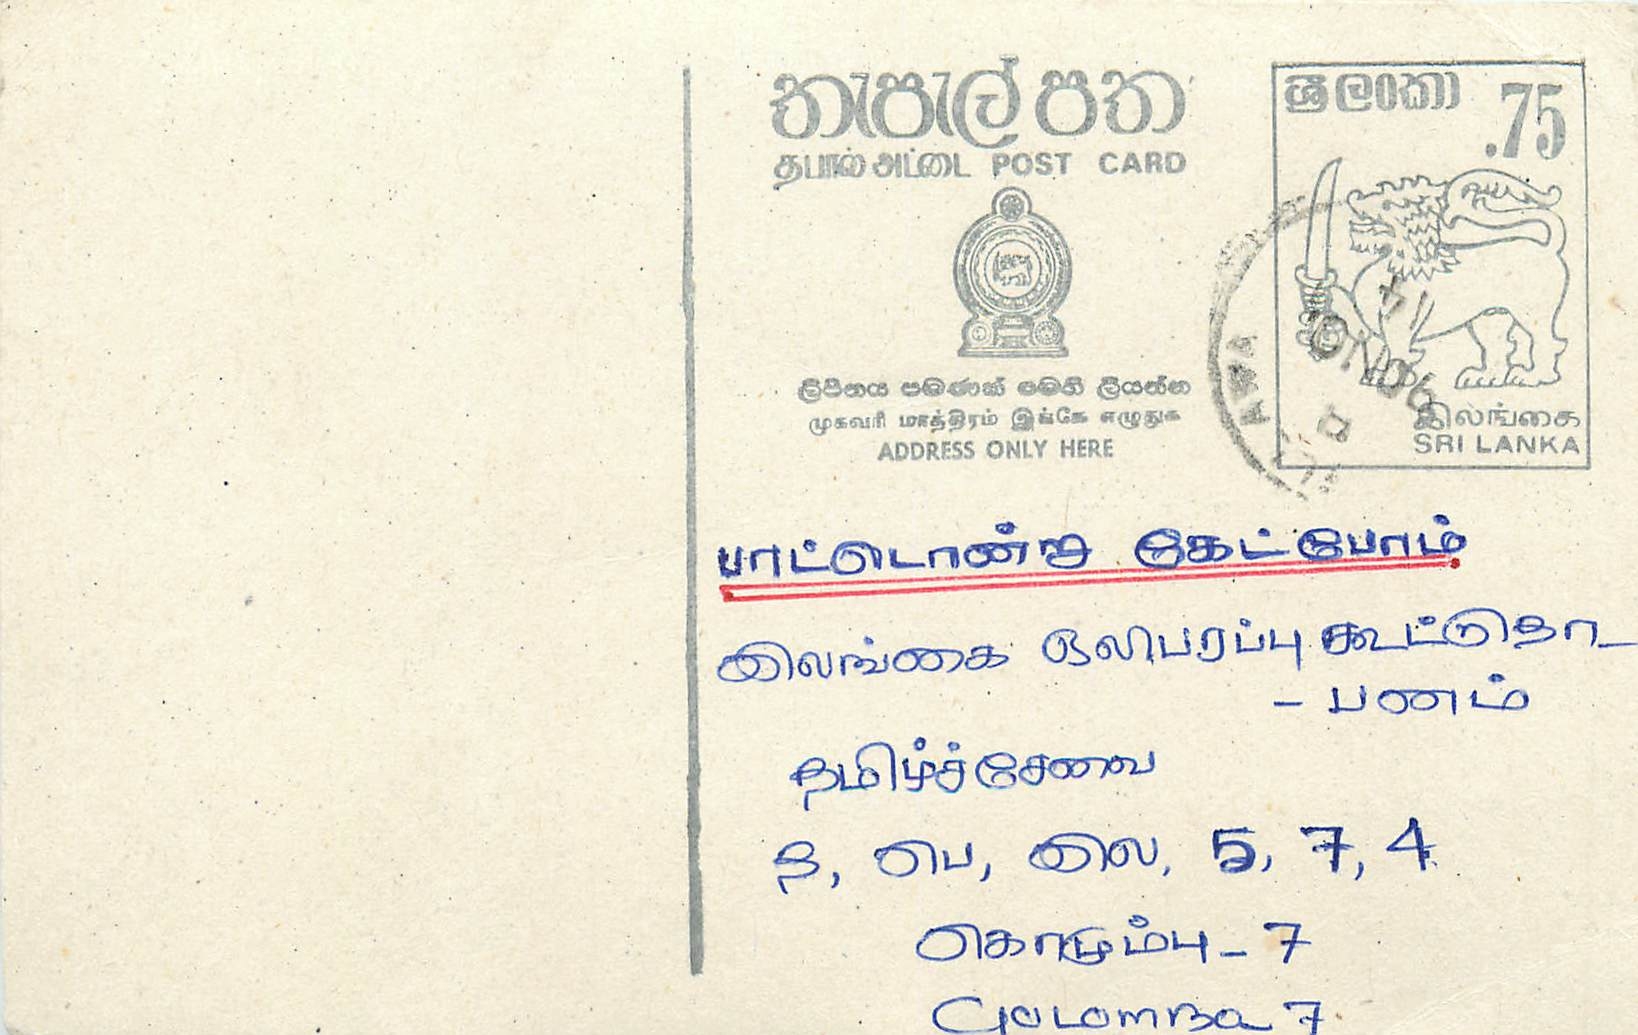 තැපැල් පත
தபால் அட்டை POST CARD
ශ්‍රී ලංකා .75
ලිපිනය පමණක් මෙහි ලියන්න
முகவரி மாத்திரம் இங்கே எழுதுக
ADDRESS ONLY HERE
இலங்கை
SRI LANKA
பாட்டொன்று கேட்போம்
இலங்கை ஒலிபரப்பு கூட்டுதா_
- பனம்
தமிழ்ச்சேவை
த, பெ, இல, 5, 7, 4
கொழும்பு - 7
Colomba 7